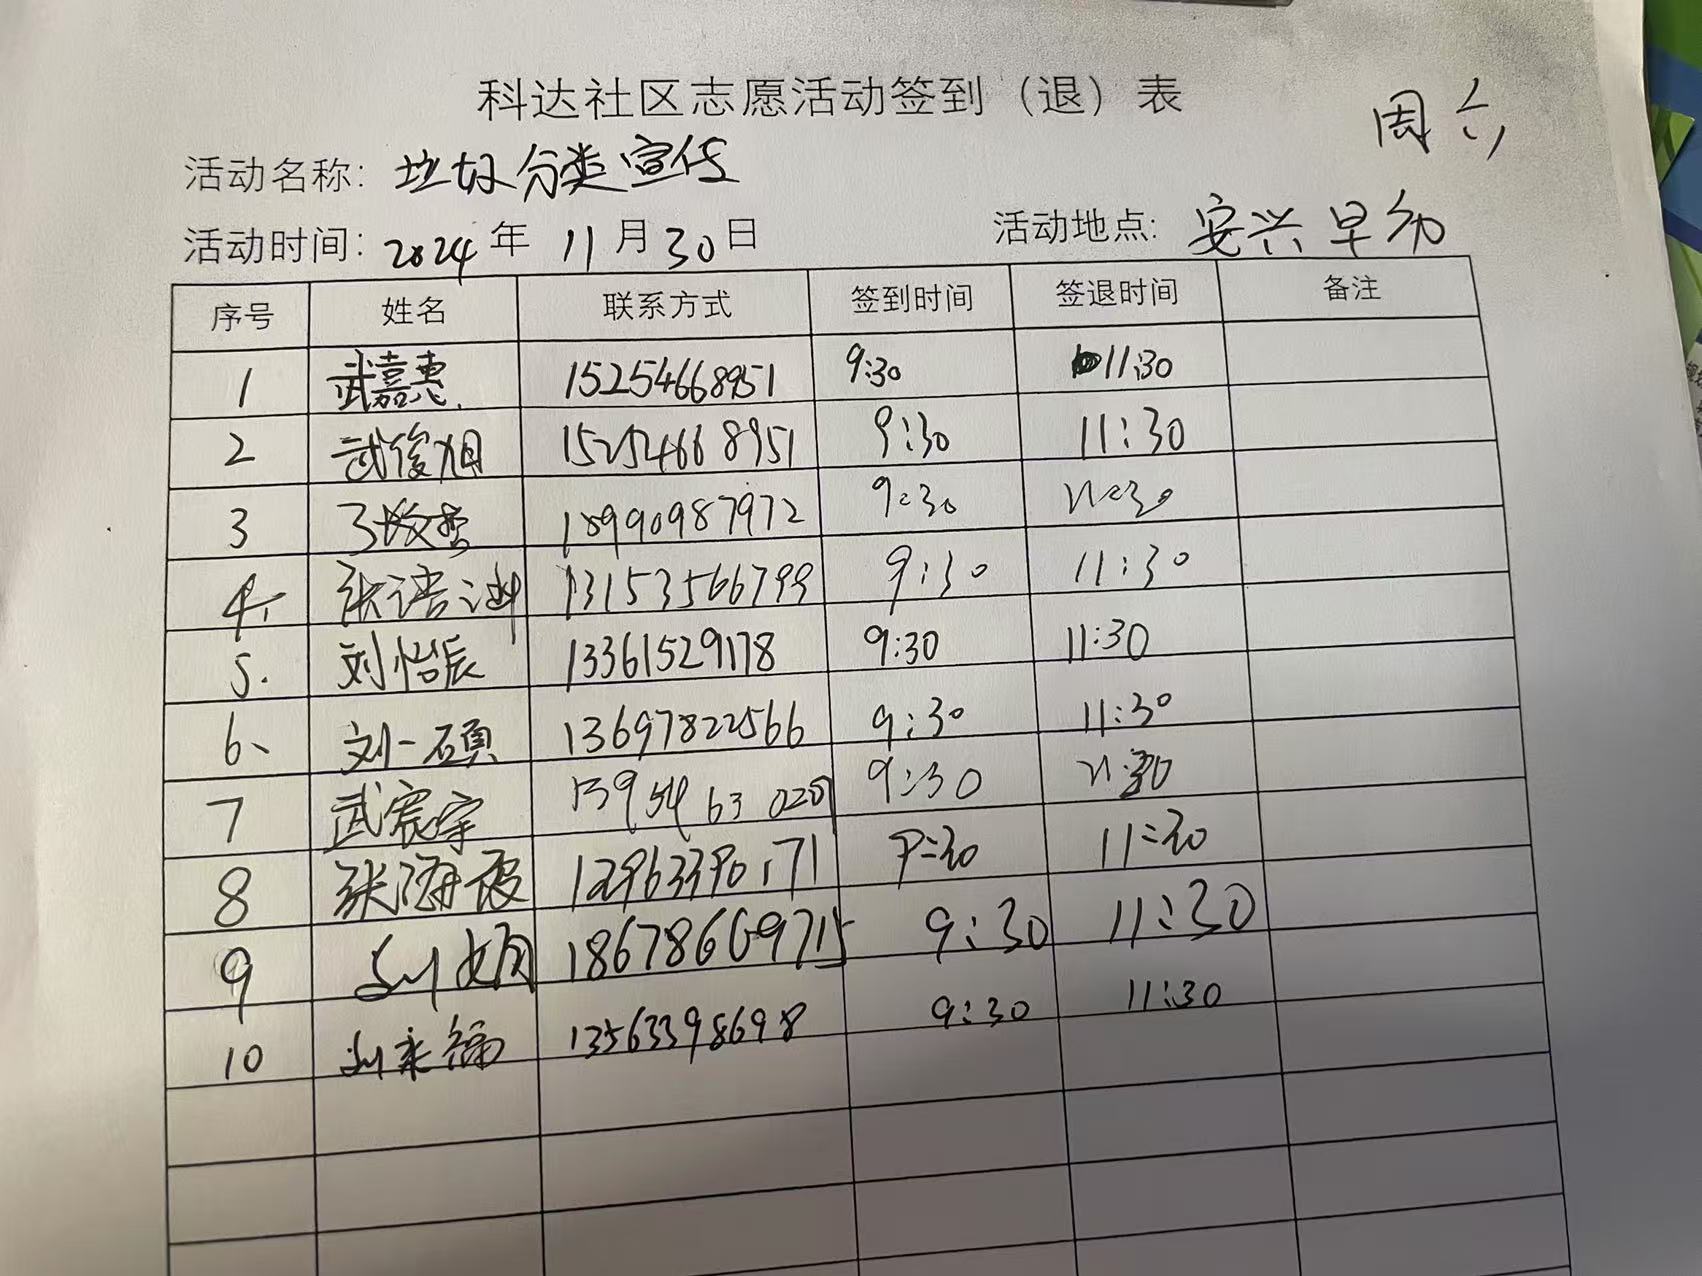 科达社区志愿活动签到（退）表
周六
活动名称: 垃圾分类宣传
活动时间: 2024年 11月30日 活动地点: 安兴早幼
序号 姓名 联系方式 签到时间 签退时间 备注
1 武嘉惠 15254668951 9:30 11:30
2 武俊旭 15254668951 9:30 11:30
3 18990987972 9:30 11:30
4、 张语 13153566799 9:30 11:30
5. 刘怡辰 13361529178 9:30 11:30
6、 刘一硕 13697822566 9:30 11:30
7 武宸宇 9:30 11:30
8 张海霞 9:30 11:30
9 刘娟 18678669715 9:30 11:30
10 刘来福 13563398698 9:30 11:30